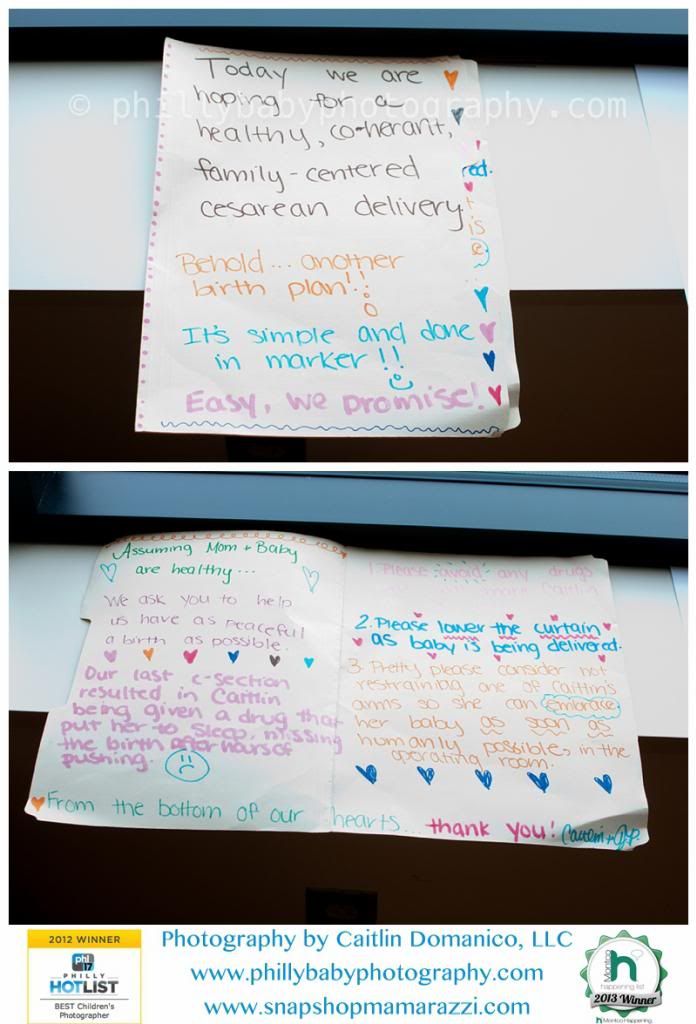 Today we are
© phillybabyphotography.com
hoping for a
healthy, co-herant,
family-centered
cesarean delivery.
Behold... another
birth plan!!
It's simple and done
in marker!!
Easy, we promise!
red.
Assuming Mom + Baby
are healthy...
We ask you to help
us have as peaceful
a birth as possible.
Our last c-section
resulted in Caitlin
being given a drug that
put her to sleep, missing
the birth after hours of
pushing.
1. Please avoid any drugs
Caitlin
2. Please lower the curtain
as baby is being delivered.
3. Pretty please consider not
restraining one of Caitlin's
arms so she can embrace
her baby as soon as
humanly possible, in the
operating room.
From the bottom of our hearts... thank you! Caitlin +
2012 WINNER
phl 17
PHILLY
HOTLIST
BEST Children's
Photographer
Photography by Caitlin Domanico, LLC
www.phillybabyphotography.com
www.snapshopmamarazzi.com
Montco
h
happening list
2013 Winner
h Montco Happening